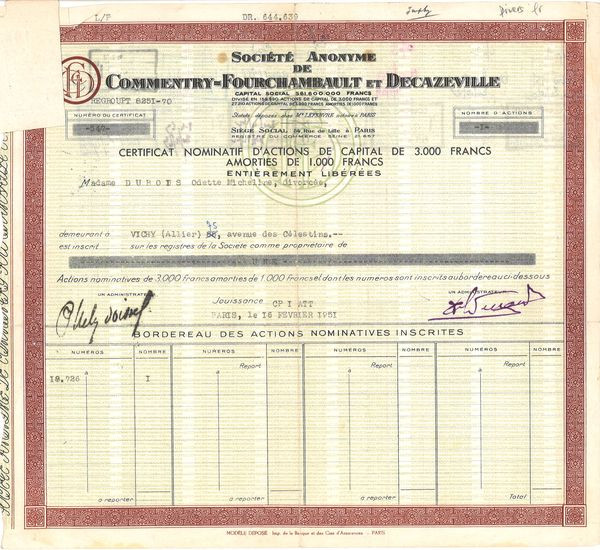 L/F DR. 644.639
SOCIÉTÉ ANONYME
DE
COMMENTRY-FOURCHAMBAULT ET DECAZEVILLE
CAPITAL SOCIAL 581.600.000 FRANCS
REGROUPT 8251-70
Statuts déposés chez Me LEFEBVRE notaire à PARIS
SIÈGE SOCIAL : 84 Rue de Lille à PARIS
REGISTRE DU COMMERCE SEINE
NUMÉRO DU CERTIFICAT
NOMBRE D'ACTIONS
-1-
CERTIFICAT NOMINATIF D'ACTIONS DE CAPITAL DE 3.000 FRANCS
AMORTIES DE 1.000 FRANCS
ENTIÈREMENT LIBÉRÉES
Madame DUBOIS Odette Micheline, divorcée,
demeurant à VICHY (Allier) 75, avenue des Célestins.--
est inscrit sur les registres de la Société comme propriétaire de
UNE
Actions nominatives de 3.000 francs amorties de 1.000 francs et dont les numéros sont inscrits au bordereau ci-dessous
UN ADMINISTRATEUR
UN ADMINISTRATEUR
Jouissance CP I ATT
PARIS, le 16 FEVRIER 1951
BORDEREAU DES ACTIONS NOMINATIVES INSCRITES
NUMÉROS NOMBRE NUMÉROS NOMBRE NUMÉROS NOMBRE NUMÉROS NOMBRE
à Report à Report à Report à
18.726 I
à reporter à reporter à reporter Total
MODÈLE DÉPOSÉ Imp. de la Banque et des Cies d'Assurances - PARIS